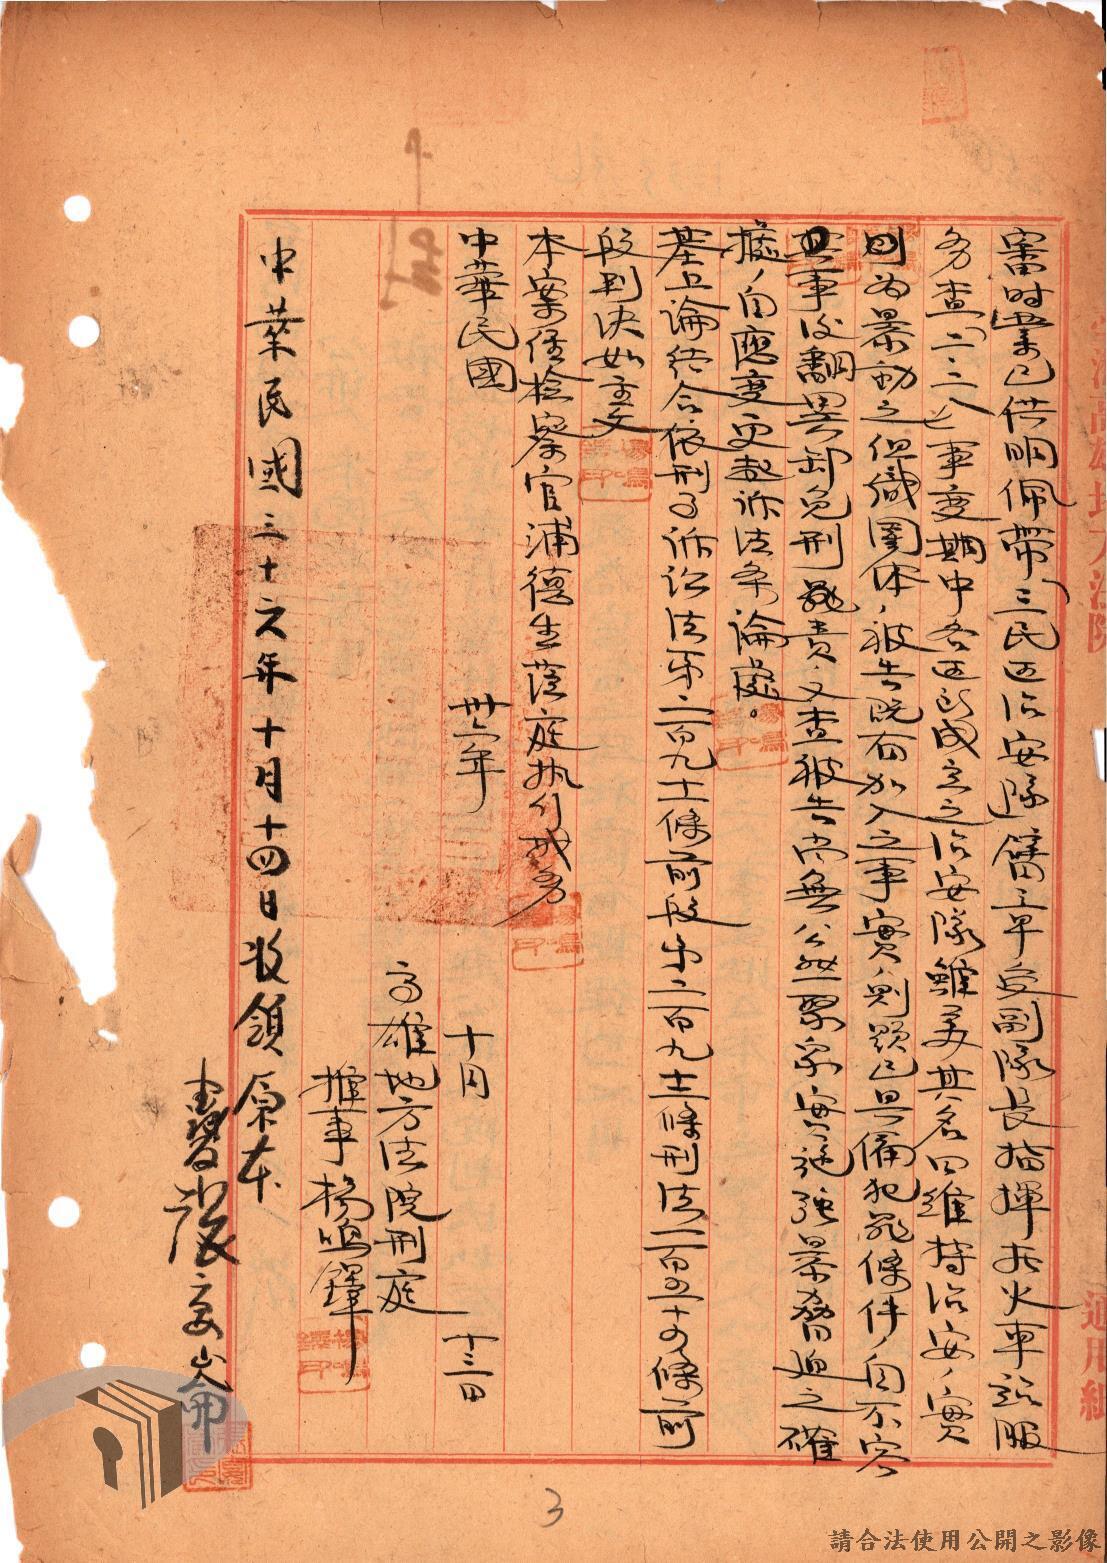 審時業已供明佩帶「三民區治安隊」舊三早受副隊長指揮於火車站服
務查「二二八」事變期中各區所成立之治安隊雖美其名曰維持治安、實
則為暴動之組織團体、被告既有加入之事實、則顯已具備犯罪條件自不容
其事後翻異卸免刑罪責、又查被告尚無公然聚眾實施強暴脅迫之確
據、自應變更起訴法條論處。
基上論結合依刑事訴訟法第二百九十一條前段第二百九十二條刑法一百五十四條前
段判決如主文
本案經檢察官浦德生蒞庭執行職務
中華民國 卅六年 十月 十三日
高雄地方法院刑庭
推事楊鳴鐸
中華民國三十六年十月十四日收領原本
書記官張
高雄地方法院
通用紙
3
請合法使用公開之影像